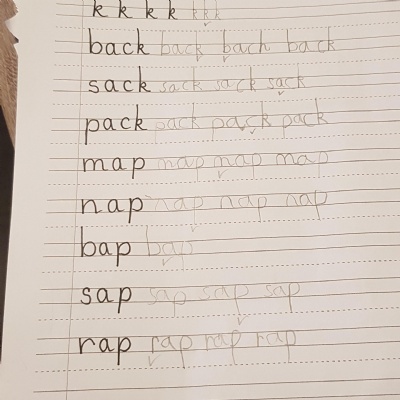 k k k k k k k
back back bach back
sack sack sack sack
pack pack pack pack
map map map map
nap nap nap nap
bap bap
sap sap sap sap
rap rap rap rap